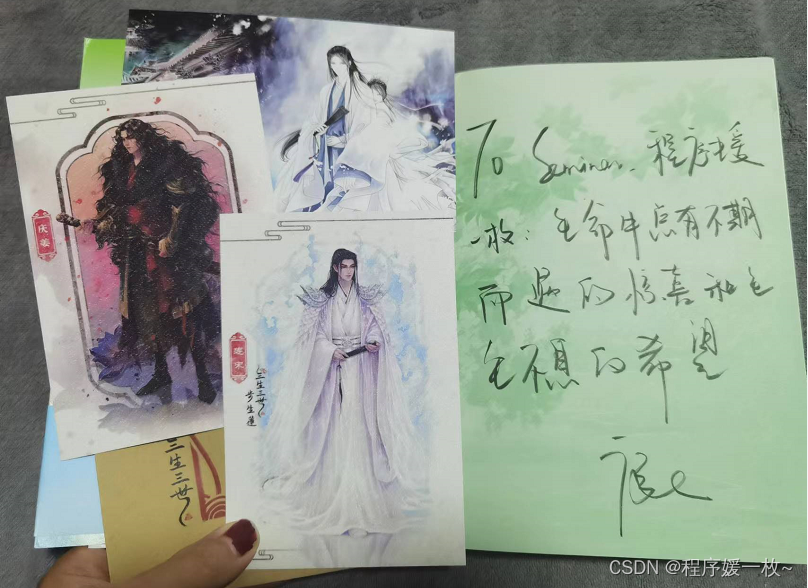 庆姜
连宋
三生三世
步生莲
三生三世
To Seminar. 程序媛
一枚：生命中总有不期
而遇的惊喜和生
生不息的希望
CSDN @程序媛一枚~